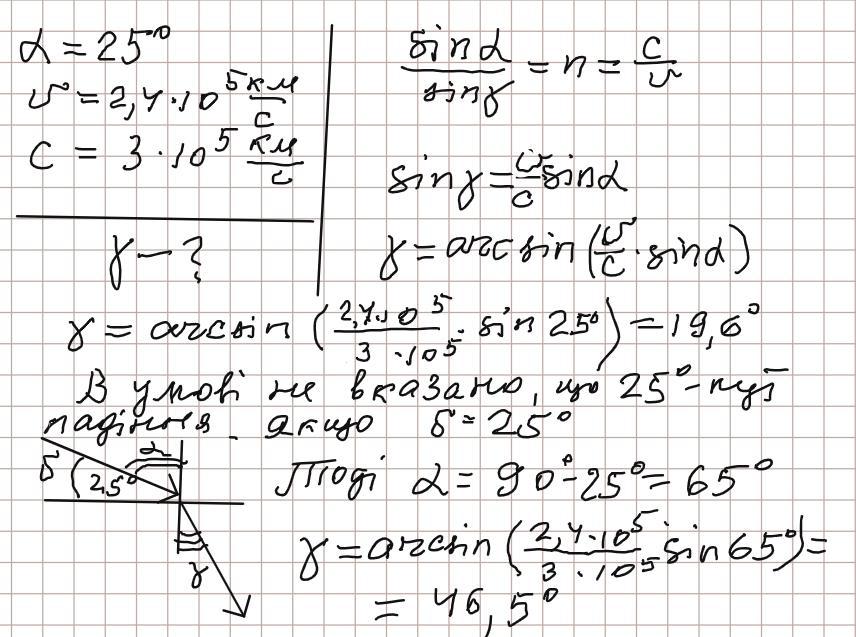 α = 25°
v = 2,4·10⁵ км/с
c = 3·10⁵ км/с
γ — ?
sin α / sin γ = n = c/v
sin γ = v/c sin α
γ = arcsin (v/c · sin α)
γ = arcsin (2,4·10⁵ / 3·10⁵ · sin 25°) = 19,6°
В умові не вказано, що 25° - кут
падіння. якщо б = 25°
б 25° α
γ
Тоді α = 90° - 25° = 65°
γ = arcsin (2,4·10⁵ / 3·10⁵ sin 65°) =
= 46,5°